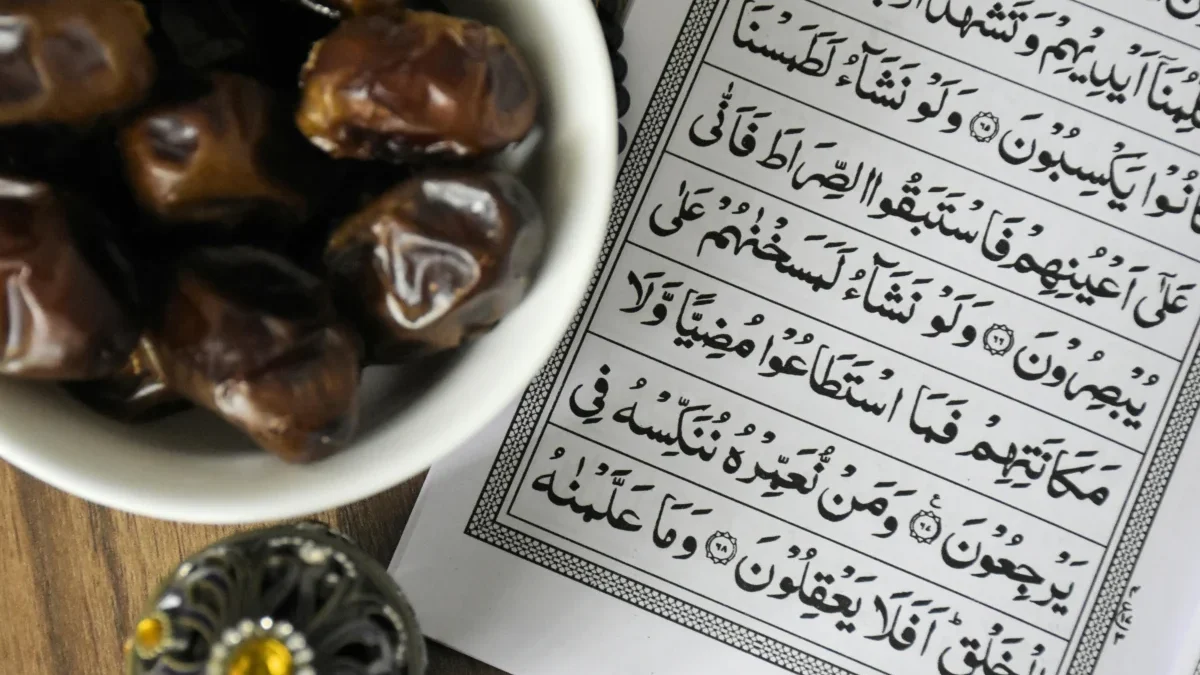 اَيْدِيْهِمْ وَتَشْهَدُ
كَانُوْا يَكْسِبُوْنَ ۶۵ وَلَوْ نَشَآءُ لَطَمَسْنَا
عَلٰٓى اَعْيُنِهِمْ فَاسْتَبَقُوا الصِّرَاطَ فَاَنّٰى
يُبْصِرُوْنَ ۶۶ وَلَوْ نَشَآءُ لَمَسَخْنٰهُمْ عَلٰى
مَكَانَتِهِمْ فَمَا اسْتَطَاعُوْا مُضِيًّا وَّلَا
يَرْجِعُوْنَ ۶۷ وَمَنْ نُّعَمِّرْهُ نُنَكِّسْهُ فِى
الْخَلْقِ ؕ اَفَلَا يَعْقِلُوْنَ ۶۸ وَمَا عَلَّمْنٰهُ